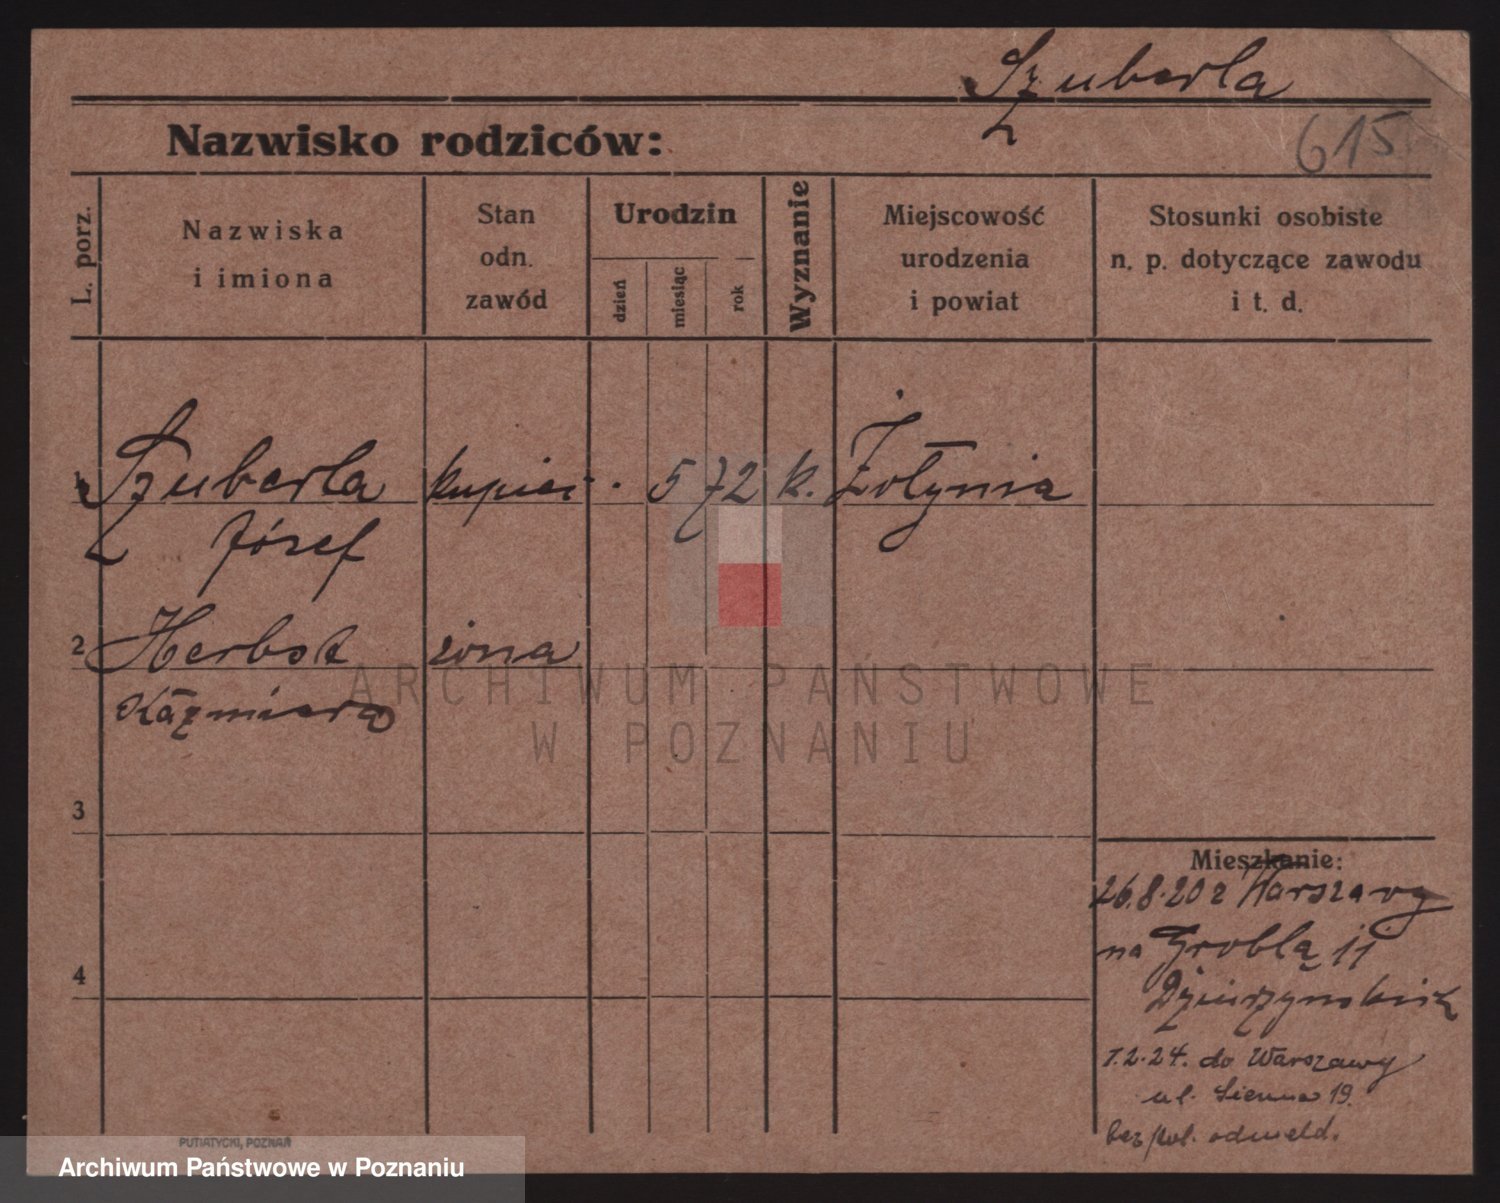 Szuberla
Nazwisko rodziców:
615
L. porz.
Nazwiska
i imiona
Stan
odn.
zawód
Urodzin
dzień
miesiąc
rok
Wyznanie
Miejscowość
urodzenia
i powiat
Stosunki osobiste
n. p. dotyczące zawodu
i t. d.
1 Szuberla kupiec . 5 72 k. Żołynia
Józef
2 Herbst żona
Kaźmiera
ARCHIWUM PAŃSTWOWE
W POZNANIU
3
4
Mieszkanie:
26.8.20 z Warszawy
na Groblą 11
7.2.24. do Warszawy
ul. Sienna 19.
bez pol. odmeld.
PUTIATYCKI, POZNAŃ
Archiwum Państwowe w Poznaniu